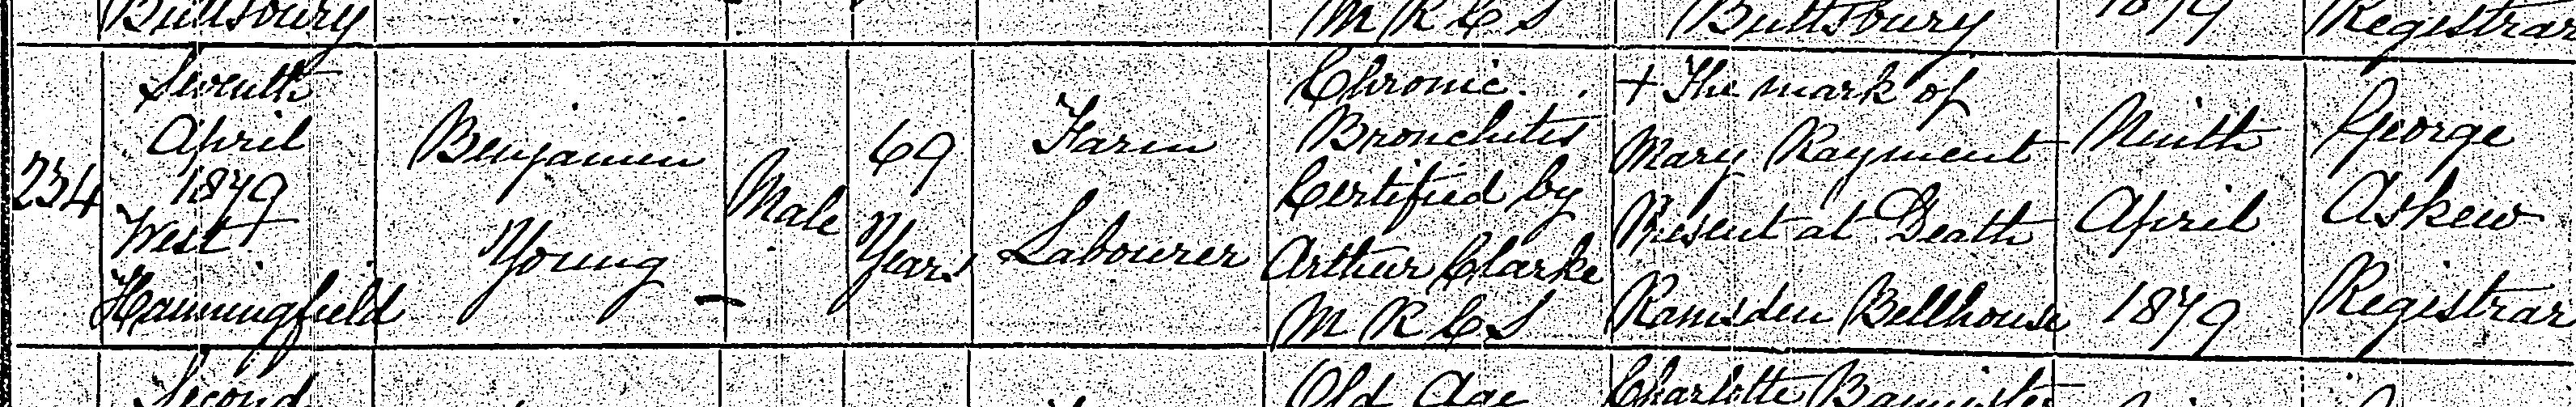 Buttsbury
M R C S
Buttsbury
1879
Registrar
234
Seventh
April
1879
West
Hanningfield
Benjamin
Young
Male
69
Years
Farm
Labourer
Chronic
Bronchitis
Certified by
Arthur Clarke
M R C S
+ The mark of
Mary Rayment
Present at Death
Ramsden Bellhouse
Ninth
April
1879
George
Askew
Registrar
Second
Old Age
Charlotte Bannister